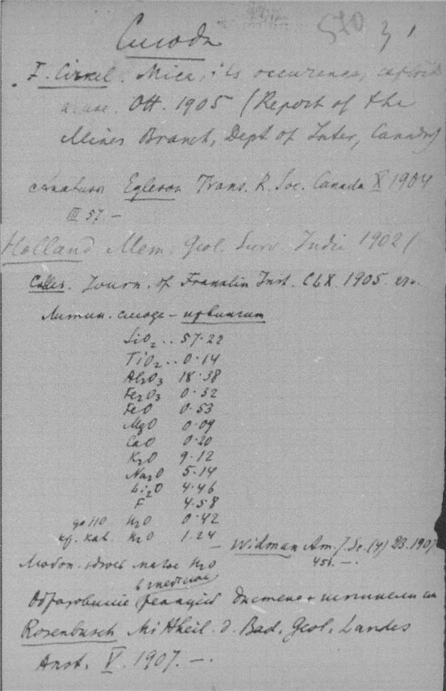 570 31
Слюда
F. Cirkel. Mica, its occurence, exploit.
a. use. Ott. 1905 (Report of the
Mines Branch, Dept of Inter, Canada)
Egleson Trans. R. Soc. Canada X 1904
III 57. —
Holland Mem. Geol. Surv. India 1902 (
Colles. Journ. of Franklin Inst. CLX. 1905.
Литин. слюда — ирвингит
SiO2 .. 57.22
TiO2 .. 0.14
Al2O3 18.38
Fe2O3 0.32
FeO 0.53
MgO 0.09
CaO 0.20
K2O 9.12
Na2O 5.14
Li2O 4.46
F 4.58
до 110 H2O 0.42
кр. кал. H2O 1.24
— Weidman Am. J. Sc. (4) 23. 1907
451. —.
Любоп. здесь малое H2O
в мусковите
Образование дистена + шпинели
Rosenbusch Mittheil. d. Bad. Geol. Landes
Anst. V. 1907. —.